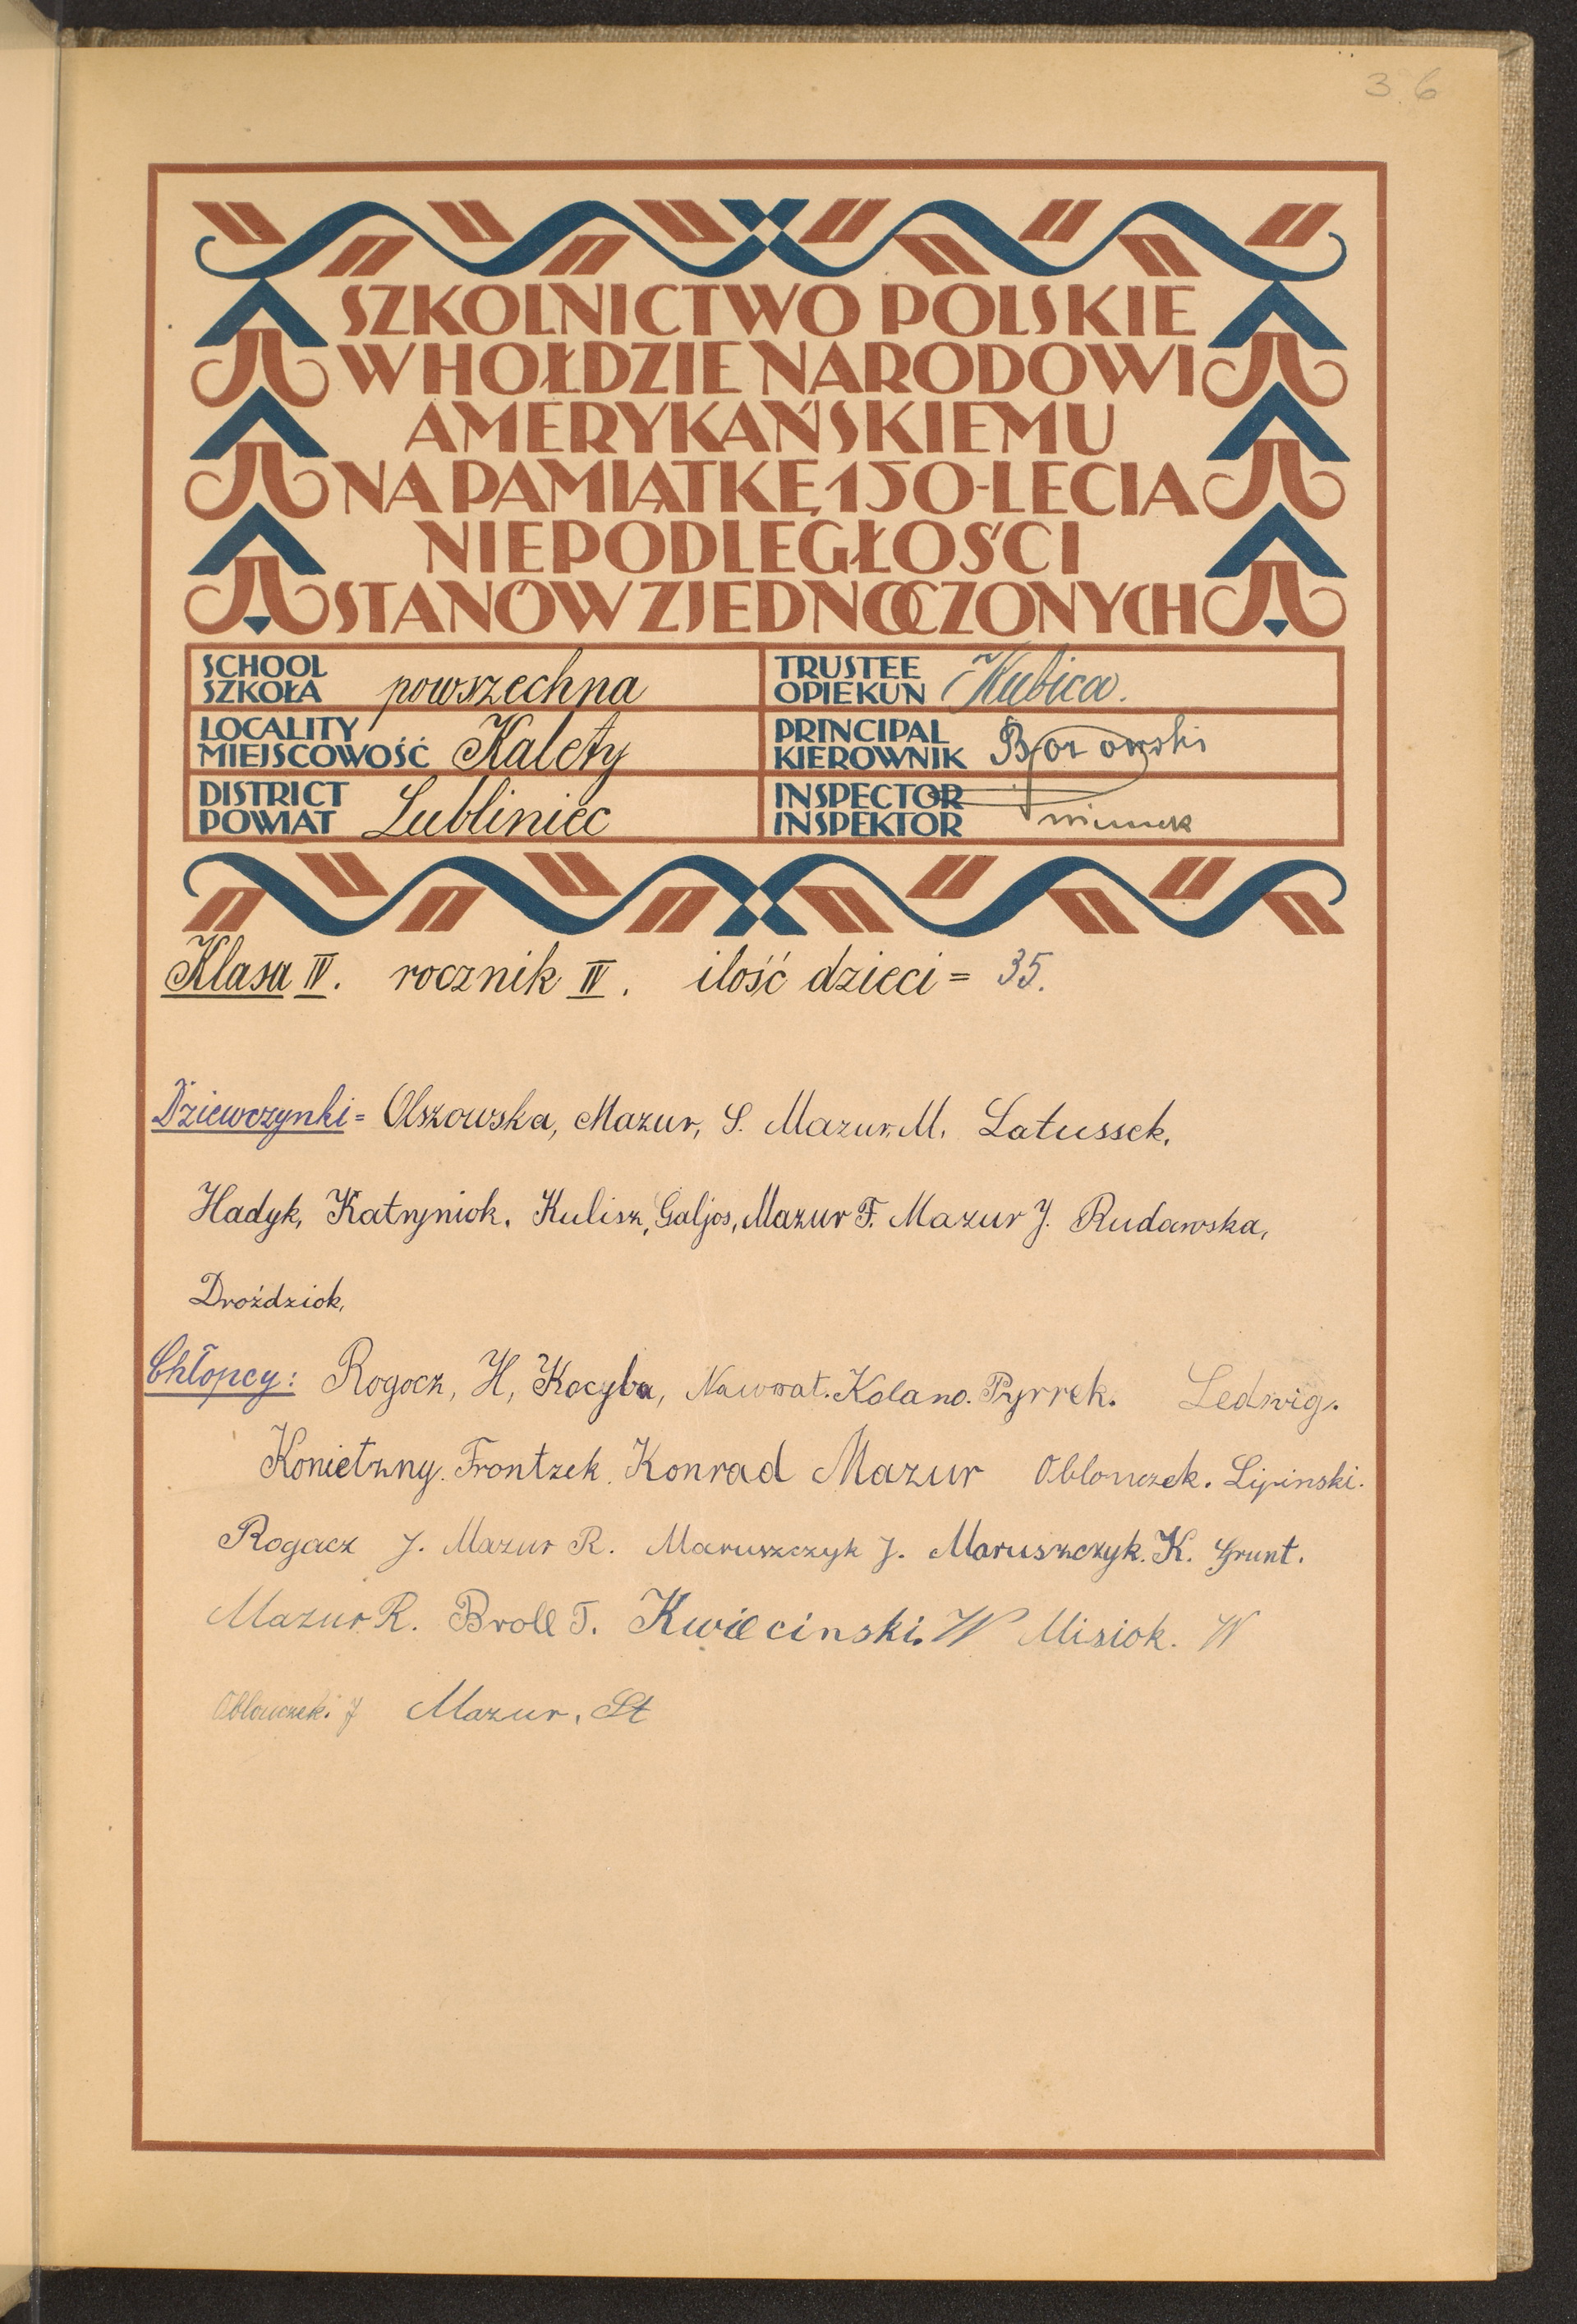 36
SZKOLNICTWO POLSKIE
W HOŁDZIE NARODOWI
AMERYKAŃSKIEMU
NA PAMIĄTKĘ 150-LECIA
NIEPODLEGŁOŚCI
STANÓW ZJEDNOCZONYCH
SCHOOL
SZKOŁA powszechna
TRUSTEE
OPIEKUN Kubica.
LOCALITY
MIEJSCOWOŚĆ Kalety
PRINCIPAL
KIEROWNIK Borowski
DISTRICT
POWIAT Lubliniec
INSPECTOR
INSPEKTOR
Klasa IV. rocznik IV. ilość dzieci = 35.
Dziewczynki = Olszowska, Mazur, S. Mazur. M. Latussek,
Hadyk, Katryniok. Kulisz, Galjos, Mazur F. Mazur J. Rudawska,
Droździok,
Chłopcy: Rogocz, H, Kocyba, Nawrat. Kolano. Pyrrek. Ledwig.
Konietzny. Frontzek. Konrad Mazur Oblonczek. Lipinski.
Rogacz J. Mazur R. Maruszczyk J. Maruszczyk. K. Grunt.
Mazur R. Broll T. Kwiecinski. W Misiok. W
Oblonczek. J Mazur. St